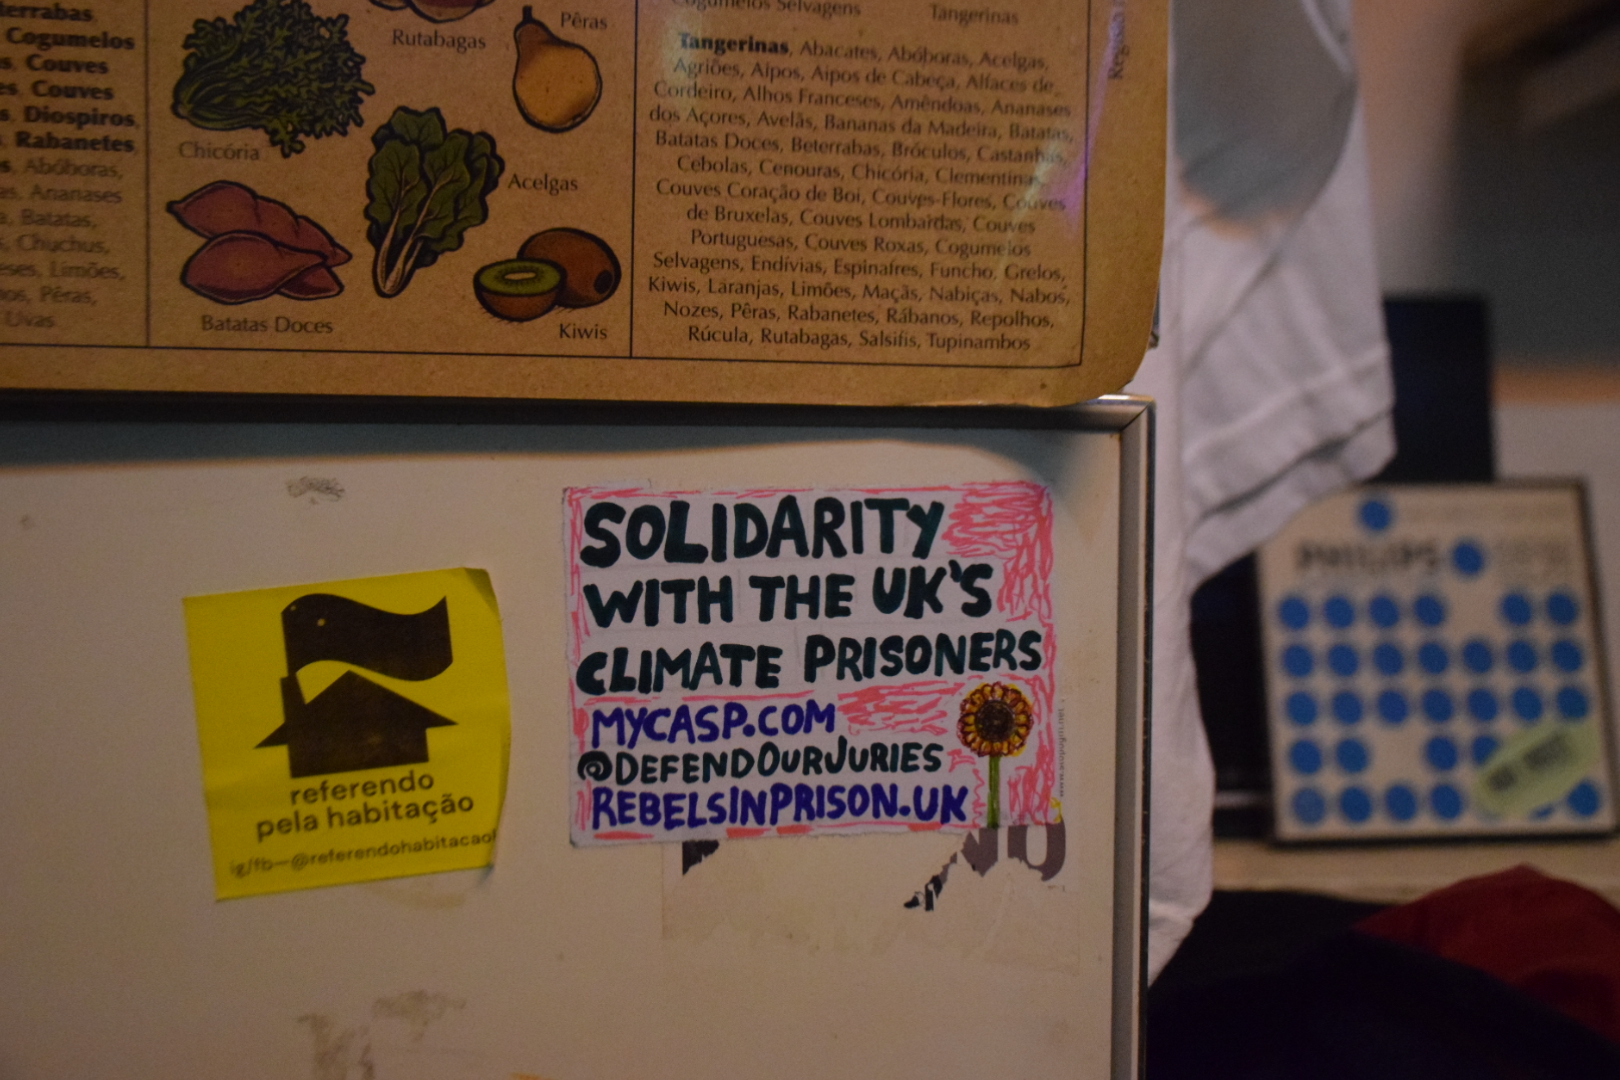 Cogumelos
Couves
Couves
Diospiros,
Rabanetes,
Abóboras,
Ananases
Batatas,
Chuchus,
Limões,
Pêras,
Uvas
Rutabagas
Pêras
Chicória
Acelgas
Batatas Doces
Kiwis
Cogumelos Selvagens
Tangerinas
Tangerinas, Abacates, Abóboras, Acelgas,
Agriões, Aipos, Aipos de Cabeça, Alfaces de
Cordeiro, Alhos Franceses, Amêndoas, Ananases
dos Açores, Avelãs, Bananas da Madeira, Batatas,
Batatas Doces, Beterrabas, Bróculos, Castanhas,
Cebolas, Cenouras, Chicória, Clementinas,
Couves Coração de Boi, Couves-Flores, Couves
de Bruxelas, Couves Lombardas, Couves
Portuguesas, Couves Roxas, Cogumelos
Selvagens, Endívias, Espinafres, Funcho, Grelos,
Kiwis, Laranjas, Limões, Maçãs, Nabiças, Nabos,
Nozes, Pêras, Rabanetes, Rábanos, Repolhos,
Rúcula, Rutabagas, Salsifis, Tupinambos
referendo
pela habitação
ig/fb—@referendohabitacao
SOLIDARITY
WITH THE UK'S
CLIMATE PRISONERS
MYCASP.COM
@DEFENDOURJURIES
REBELSINPRISON.UK
PHILIPS